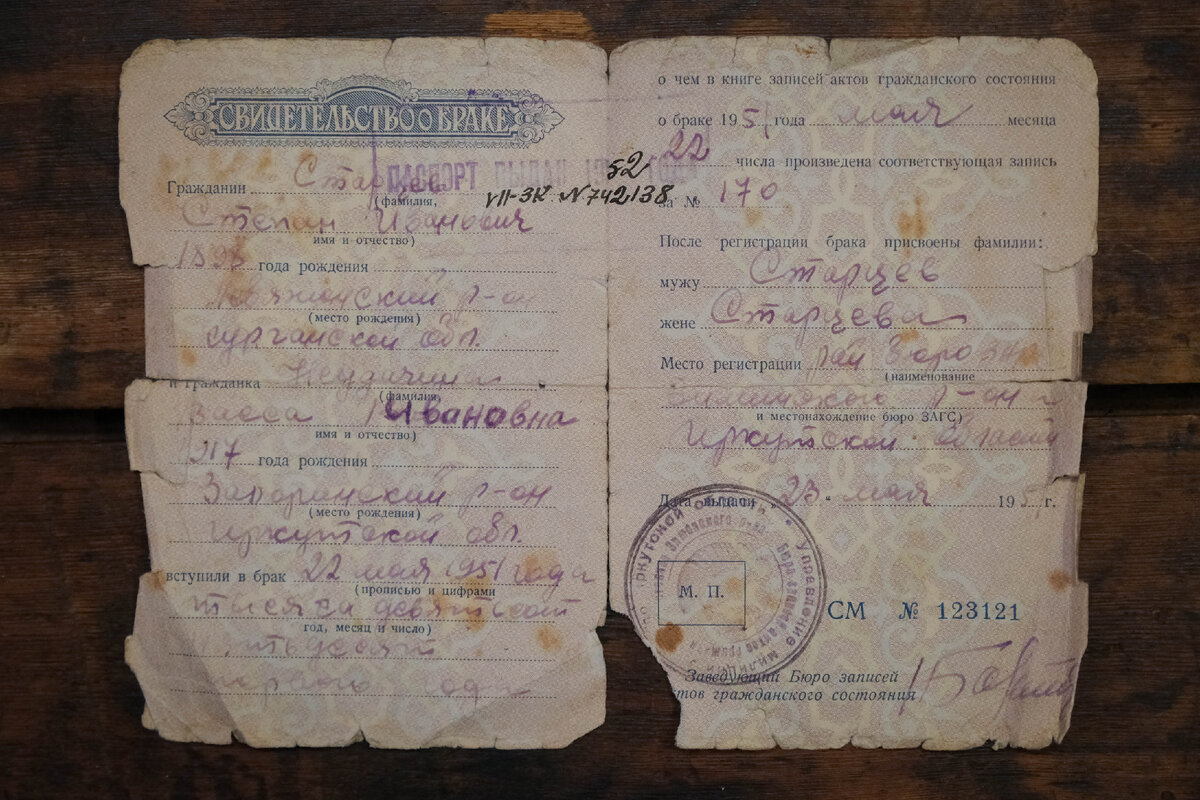 СВИДЕТЕЛЬСТВО О БРАКЕ
ПАСПОРТ ВЫДАН 19 52 ГОДА
VII-ЗК N742138
Гражданин Старцев
(фамилия,
Степан Иванович
имя и отчество)
года рождения
р-он
(место рождения)
Курганской обл.
и гражданка
(фамилия,
Васса Ивановна
имя и отчество)
917 года рождения
р-он
(место рождения)
Иркутской обл.
вступили в брак 22 мая 1951 года
(прописью и цифрами
тысяча девятьсот
год, месяц и число)
первого года
о чем в книге записей актов гражданского состояния
о браке 1951 года мая месяца
22 числа произведена соответствующая запись
за № 170
После регистрации брака присвоены фамилии:
мужу Старцев
жене Старцева
Место регистрации рай бюро ЗАГС
(наименование
р-он
и местонахождение бюро ЗАГС)
Иркутской области
Дата выдачи 23 мая 1951 г.
М. П.
СМ № 123121
Заведующий Бюро записей
актов гражданского состояния